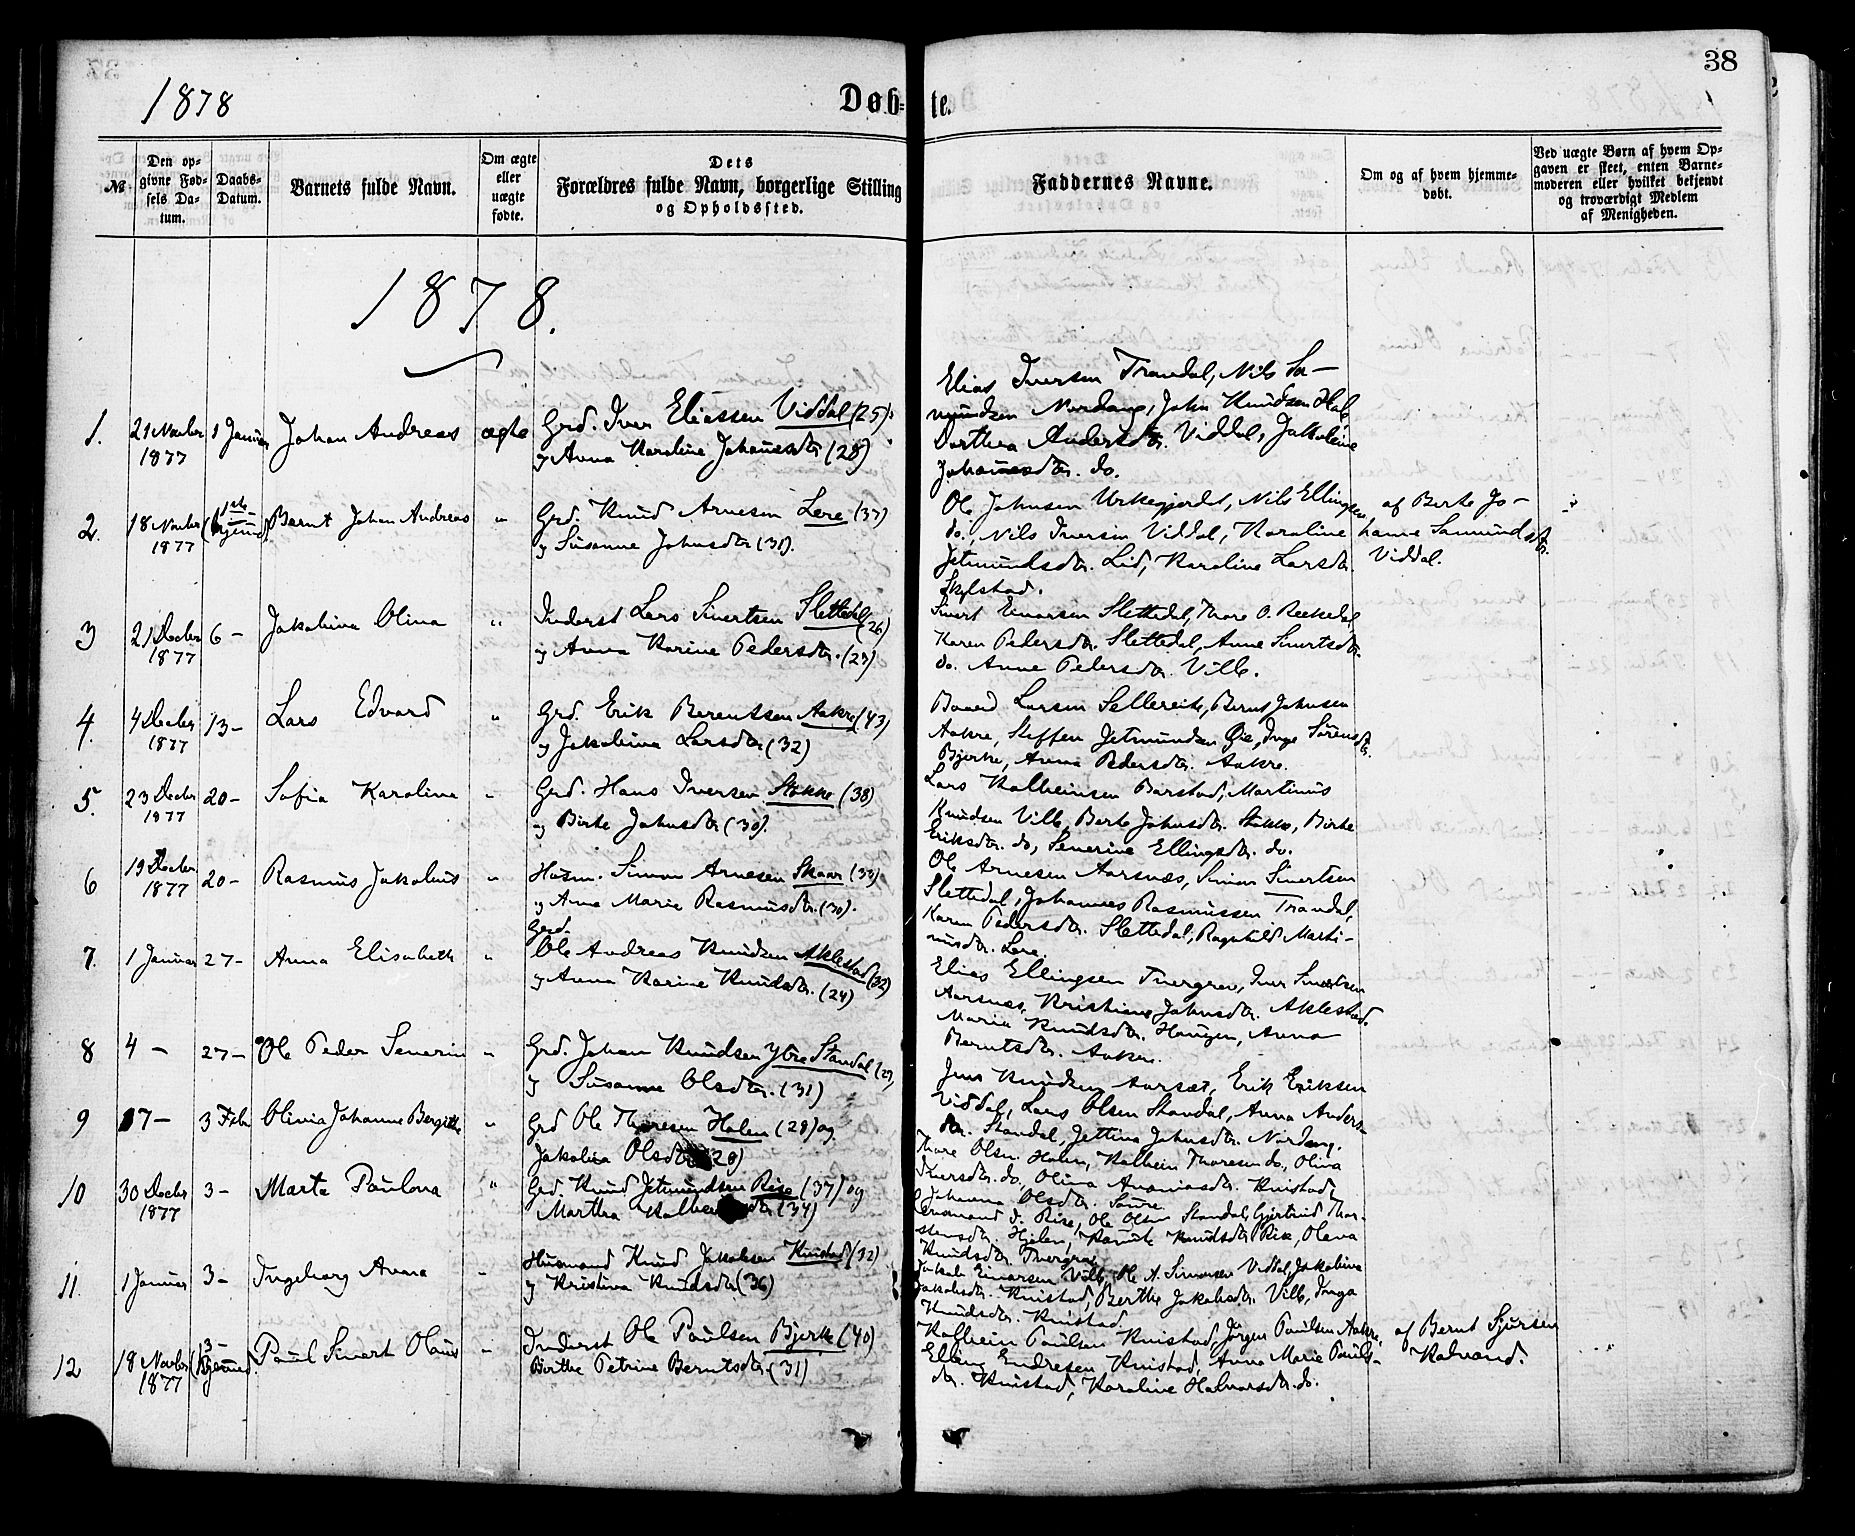 38
1878
Døbte.
№
Den opgivne Fødsels Datum.
Daabs-Datum.
Barnets fulde Navn.
Om ægte eller uægte fødte.
Dets Forældres fulde Navn, borgerlige Stilling og Opholdssted.
Faddernes Navne.
Om og af hvem hjemmedøbt.
Ved uægte Børn af hvem Opgaven er skeet, enten Barnemoderen eller hvilket bekjendt og troværdigt Medlem af Menigheden.
1878.
1. 21 Novber 1877 1 Januar Johan Andreas ægte Grd. Iver Eliassen Viddal (25)
og Anna Karoline Johannesdtr (28)
Elias Iversen Trandal, Nils Sa-
mundsen Nordang, John Knudsen Hol,
Dorthea Andersdtr. Viddal, Jakobine
Johannesdtr. do.
2. 18 Novber 1877 (1ste hjemmed) Bernt Johan Andreas " Grd. Knud Arnesen Lere (37)
og Susanne Johnsdtr (31).
Ole Johnsen Urkegjerdt, Nils Ellingsen
do., Nils Iversen Viddal, Karoline
Jetmundsdtr. Lid, Karoline Larsdtr.
Skylstad.
af Berte Jo-
hanne Samundsdtr.
Viddal.
3 21 Decber 1877 6 - Jakobina Olina " Inderst Lars Sivertsen Slettedal (26)
og Anna Karine Pedersdtr. (23)
Sivert Einarsen Slettedal, Thore O. Rekkedal,
Karen Pedersdtr. Slettedal, Anne Sivertsdtr.
do. Anne Pedersdtr. Villb.
4. 4 Decber 1877 13 - Lars Edvard " Grd. Erik Berentsen Aakre (43)
og Jakobina Larsdtr (32)
Baard Larsen Sellereite, Bernt Johnsen
Aakre, Steffen Jetmundsen Øie, Inge Sørensdtr.
Bjerke, Anna Pedersdtr. Aakre.
5. 23 Decber 1877 20 - Sofia Karolina " Grd. Hans Iversen Stokke (38)
og Birte Johnsdtr (30).
Lars Kolbeinsen Barstad, Martinus
Knudsen Villb, Berte Johnsdtr. Stokke, Birte
Eriksdtr. do, Severine Ellingsdtr. do.
6 19 Decber 1877 20 - Rasmus Jakobus " Husm. Simon Arnesen Skaar (33)
og Anne Marie Rasmusdtr. (30).
Ole Arnesen Aarsnæs, Simon Sivertsen
Slettedal, Johannes Rasmussen Trandal,
Karen Pedersdtr. Slettedal, Ragnhild Marti-
nusdtr. Lere.
7. 1 Januar 27 - Anna Elisabeth " Grd.
Ole Andreas Knudsen Aklestad (32)
og Anna Karine Knudsdtr. (24)
Elias Ellingsen Tvergrov, Iver Sivertsen
Aarsnæs, Kristiane Johnsdtr. Aklestad.
Maria Knudsdtr. Haugen, Anna
Berntsdtr. Aakre.
8 4 - 27 - Ole Peder Severin " Grd. Johan Knudsen Ytre Standal (29)
og Susanne Olsdtr. (31)
Jens Knudsen Aarsæt, Erik Eriksen
Viddal, Lars Olsen Standal, Anna Anders-
dtr. Standal, Jettina Johnsdtr. Nordang.
9 17 - 3 Febr Olivia Johanne Bergitte " Grd Ole Thoresen Holen (28) og
Jakobina Olsdtr (28)
Thore Olsen Holen, Kolbein Thoresen do, Oliva
Iversdtr. do, Olina Ananiasdtr. Knistad,
Johanna Olsdtr. Sætre.
10 30 Decber 1877 3 - Marta Paulona " Grd. Knud Jetmundsen Rise (37) og
Martha Kolbeinsdtr (34)
J. Rise, Ole Olsen Standal, Gjertrud Thor-
stensdtr. Hjelen, Knudsdtr Rise, Olava
Knudsdtr Tvergrov.
11. 1 Januar 3 - Ingeborg Anna " Husmand Knud Jakobsen Knistad (32)
og Kristina Knudsdtr (36)
Jakob Einarsen Villb, Ole A. Simonsen Viddal, Jakobina
Jakobsdtr. Knistad, Berthe Jakobsdtr. Villb, Inga
Knudsdtr. Knistad
12 18 Novber 1877 3 - (hjemmed.) Paul Sivert Olaus " Inderst Ole Paulsen Bjerke (40)
Birthe Petrine Berntsdtr. (31)
Kolbein Paulsen Knistad, Jørgen Paulsen Aakre,
Elling Endresen Knistad, Anna Marie Pauls-
dtr. Knistad, Karoline Halvorsdtr. do.
af Bernt Sjursen
Kalvand.